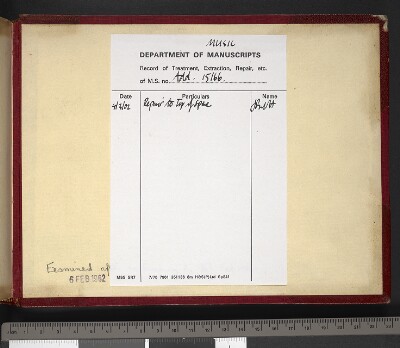 MUSIC
DEPARTMENT OF MANUSCRIPTS
Record of Treatment, Extraction, Repair, etc.
of M.S. no. Add. 15166.
Date Particulars Name
Repair to top of spine
Examined
6 FEB 1962